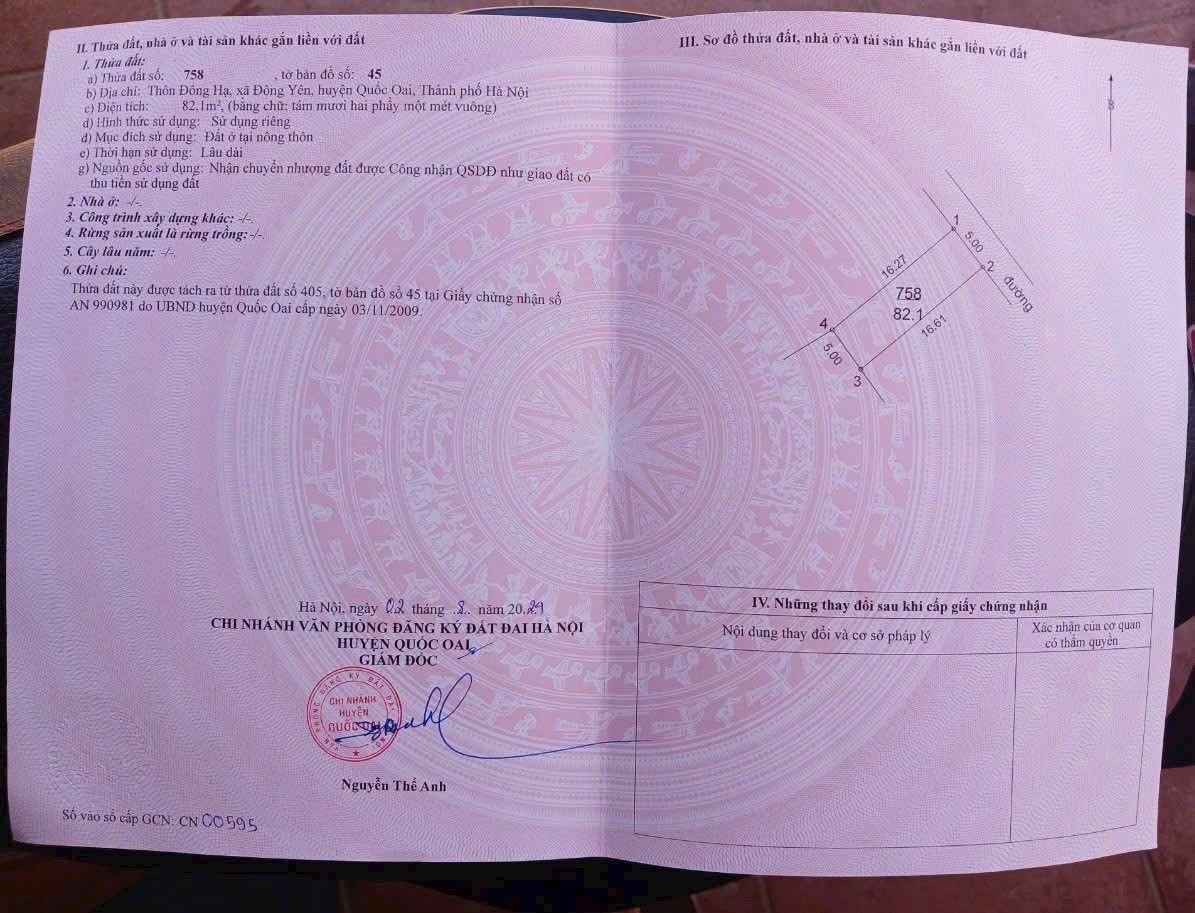 II. Thửa đất, nhà ở và tài sản khác gắn liền với đất
1. Thửa đất:
a) Thửa đất số: 758 , tờ bản đồ số: 45
b) Địa chỉ: Thôn Đông Hạ, xã Đông Yên, huyện Quốc Oai, Thành phố Hà Nội
c) Diện tích: 82,1m², (bằng chữ: tám mươi hai phẩy một mét vuông)
d) Hình thức sử dụng: Sử dụng riêng
đ) Mục đích sử dụng: Đất ở tại nông thôn
e) Thời hạn sử dụng: Lâu dài
g) Nguồn gốc sử dụng: Nhận chuyển nhượng đất được Công nhận QSDĐ như giao đất có
thu tiền sử dụng đất
2. Nhà ở: -/-.
3. Công trình xây dựng khác: -/-.
4. Rừng sản xuất là rừng trồng: -/-.
5. Cây lâu năm: -/-.
6. Ghi chú:
Thửa đất này được tách ra từ thửa đất số 405, tờ bản đồ số 45 tại Giấy chứng nhận số
AN 990981 do UBND huyện Quốc Oai cấp ngày 03/11/2009.
Hà Nội, ngày 02 tháng .8.. năm 20.24
CHI NHÁNH VĂN PHÒNG ĐĂNG KÝ ĐẤT ĐAI HÀ NỘI
HUYỆN QUỐC OAI
GIÁM ĐỐC
VĂN PHÒNG ĐĂNG KÝ ĐẤT ĐAI
CHI NHÁNH
HUYỆN
QUỐC OAI
Nguyễn Thế Anh
Số vào sổ cấp GCN: CN 00595
III. Sơ đồ thửa đất, nhà ở và tài sản khác gắn liền với đất
B
1
5.00
2
đường
16.27
758
82.1
16.61
4
5.00
3
IV. Những thay đổi sau khi cấp giấy chứng nhận
Nội dung thay đổi và cơ sở pháp lý
Xác nhận của cơ quan
có thẩm quyền